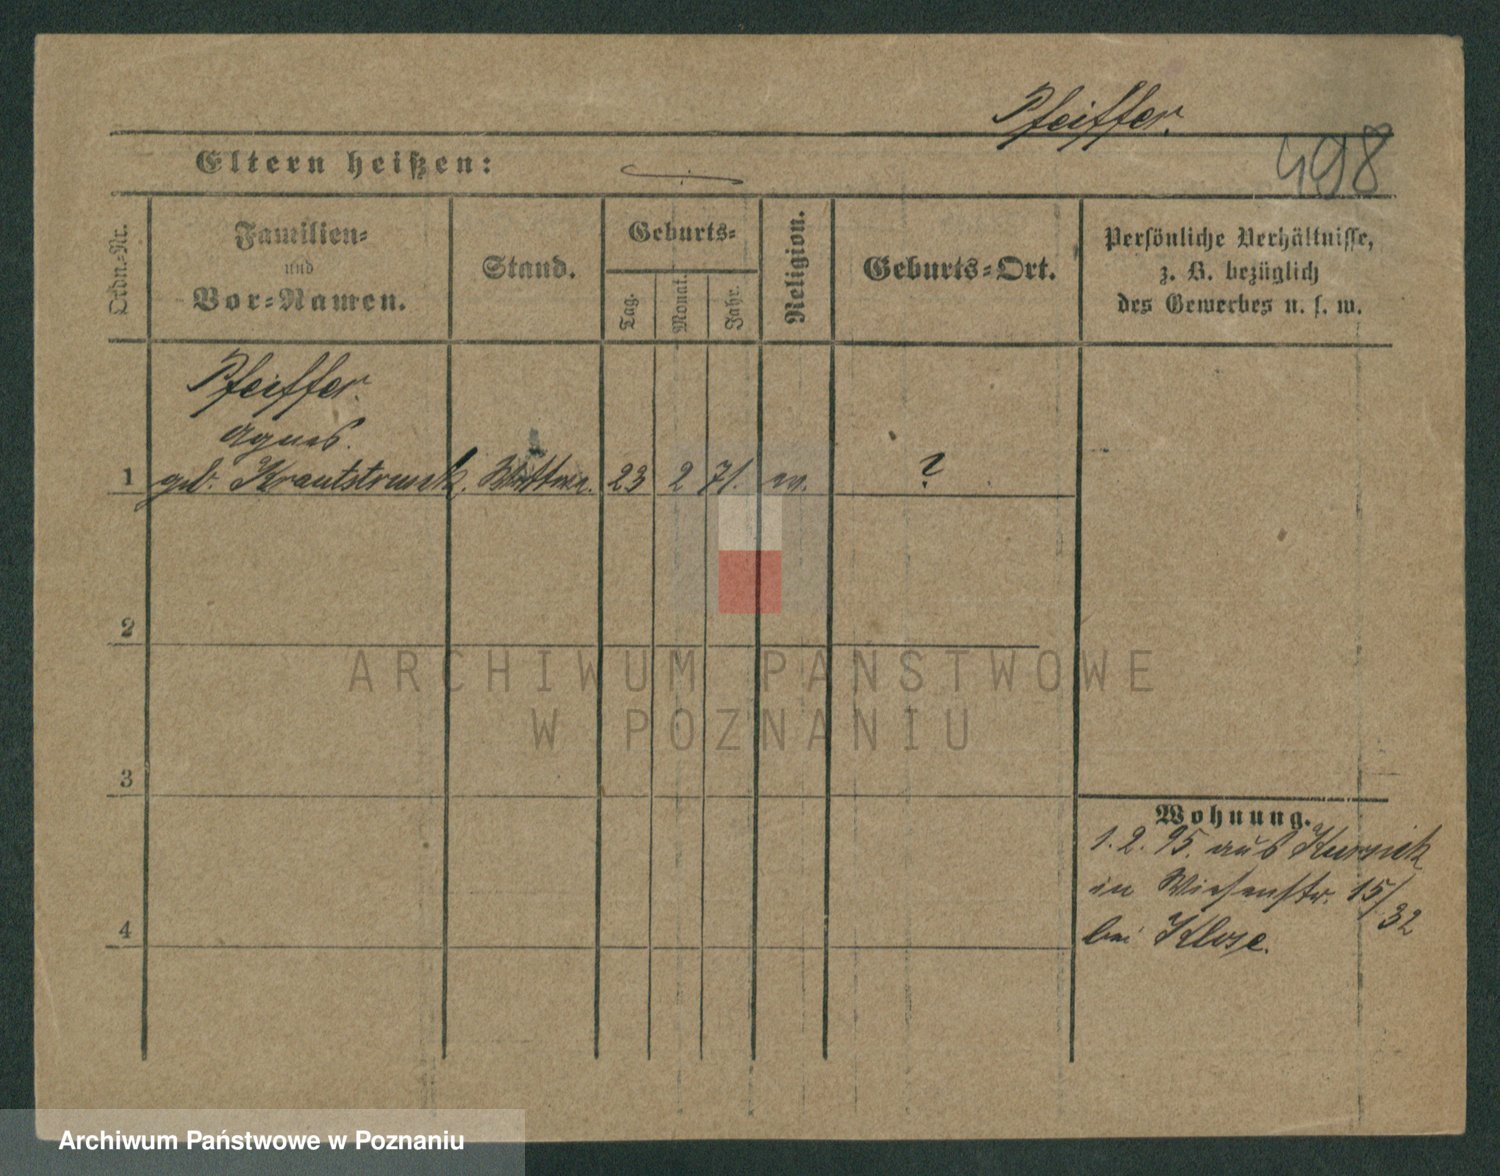 Pfeiffer.
498
Eltern heißen:
Ordn.-Nr.
Familien-
und
Vor-Namen.
Stand.
Geburts-
Tag.
Monat.
Jahr.
Religion.
Geburts-Ort.
Persönliche Verhältnisse,
z. B. bezüglich
des Gewerbes u. s. w.
Pfeiffer.
Agnes.
1 geb. Wittwe. 23 2 71. ev. ?
2
3
4
Wohnung.
1. 2. 95. aus Kurnick
in Wiesenstr. 15/32
bei Klose.
ARCHIWUM PAŃSTWOWE
W POZNANIU
Archiwum Państwowe w Poznaniu